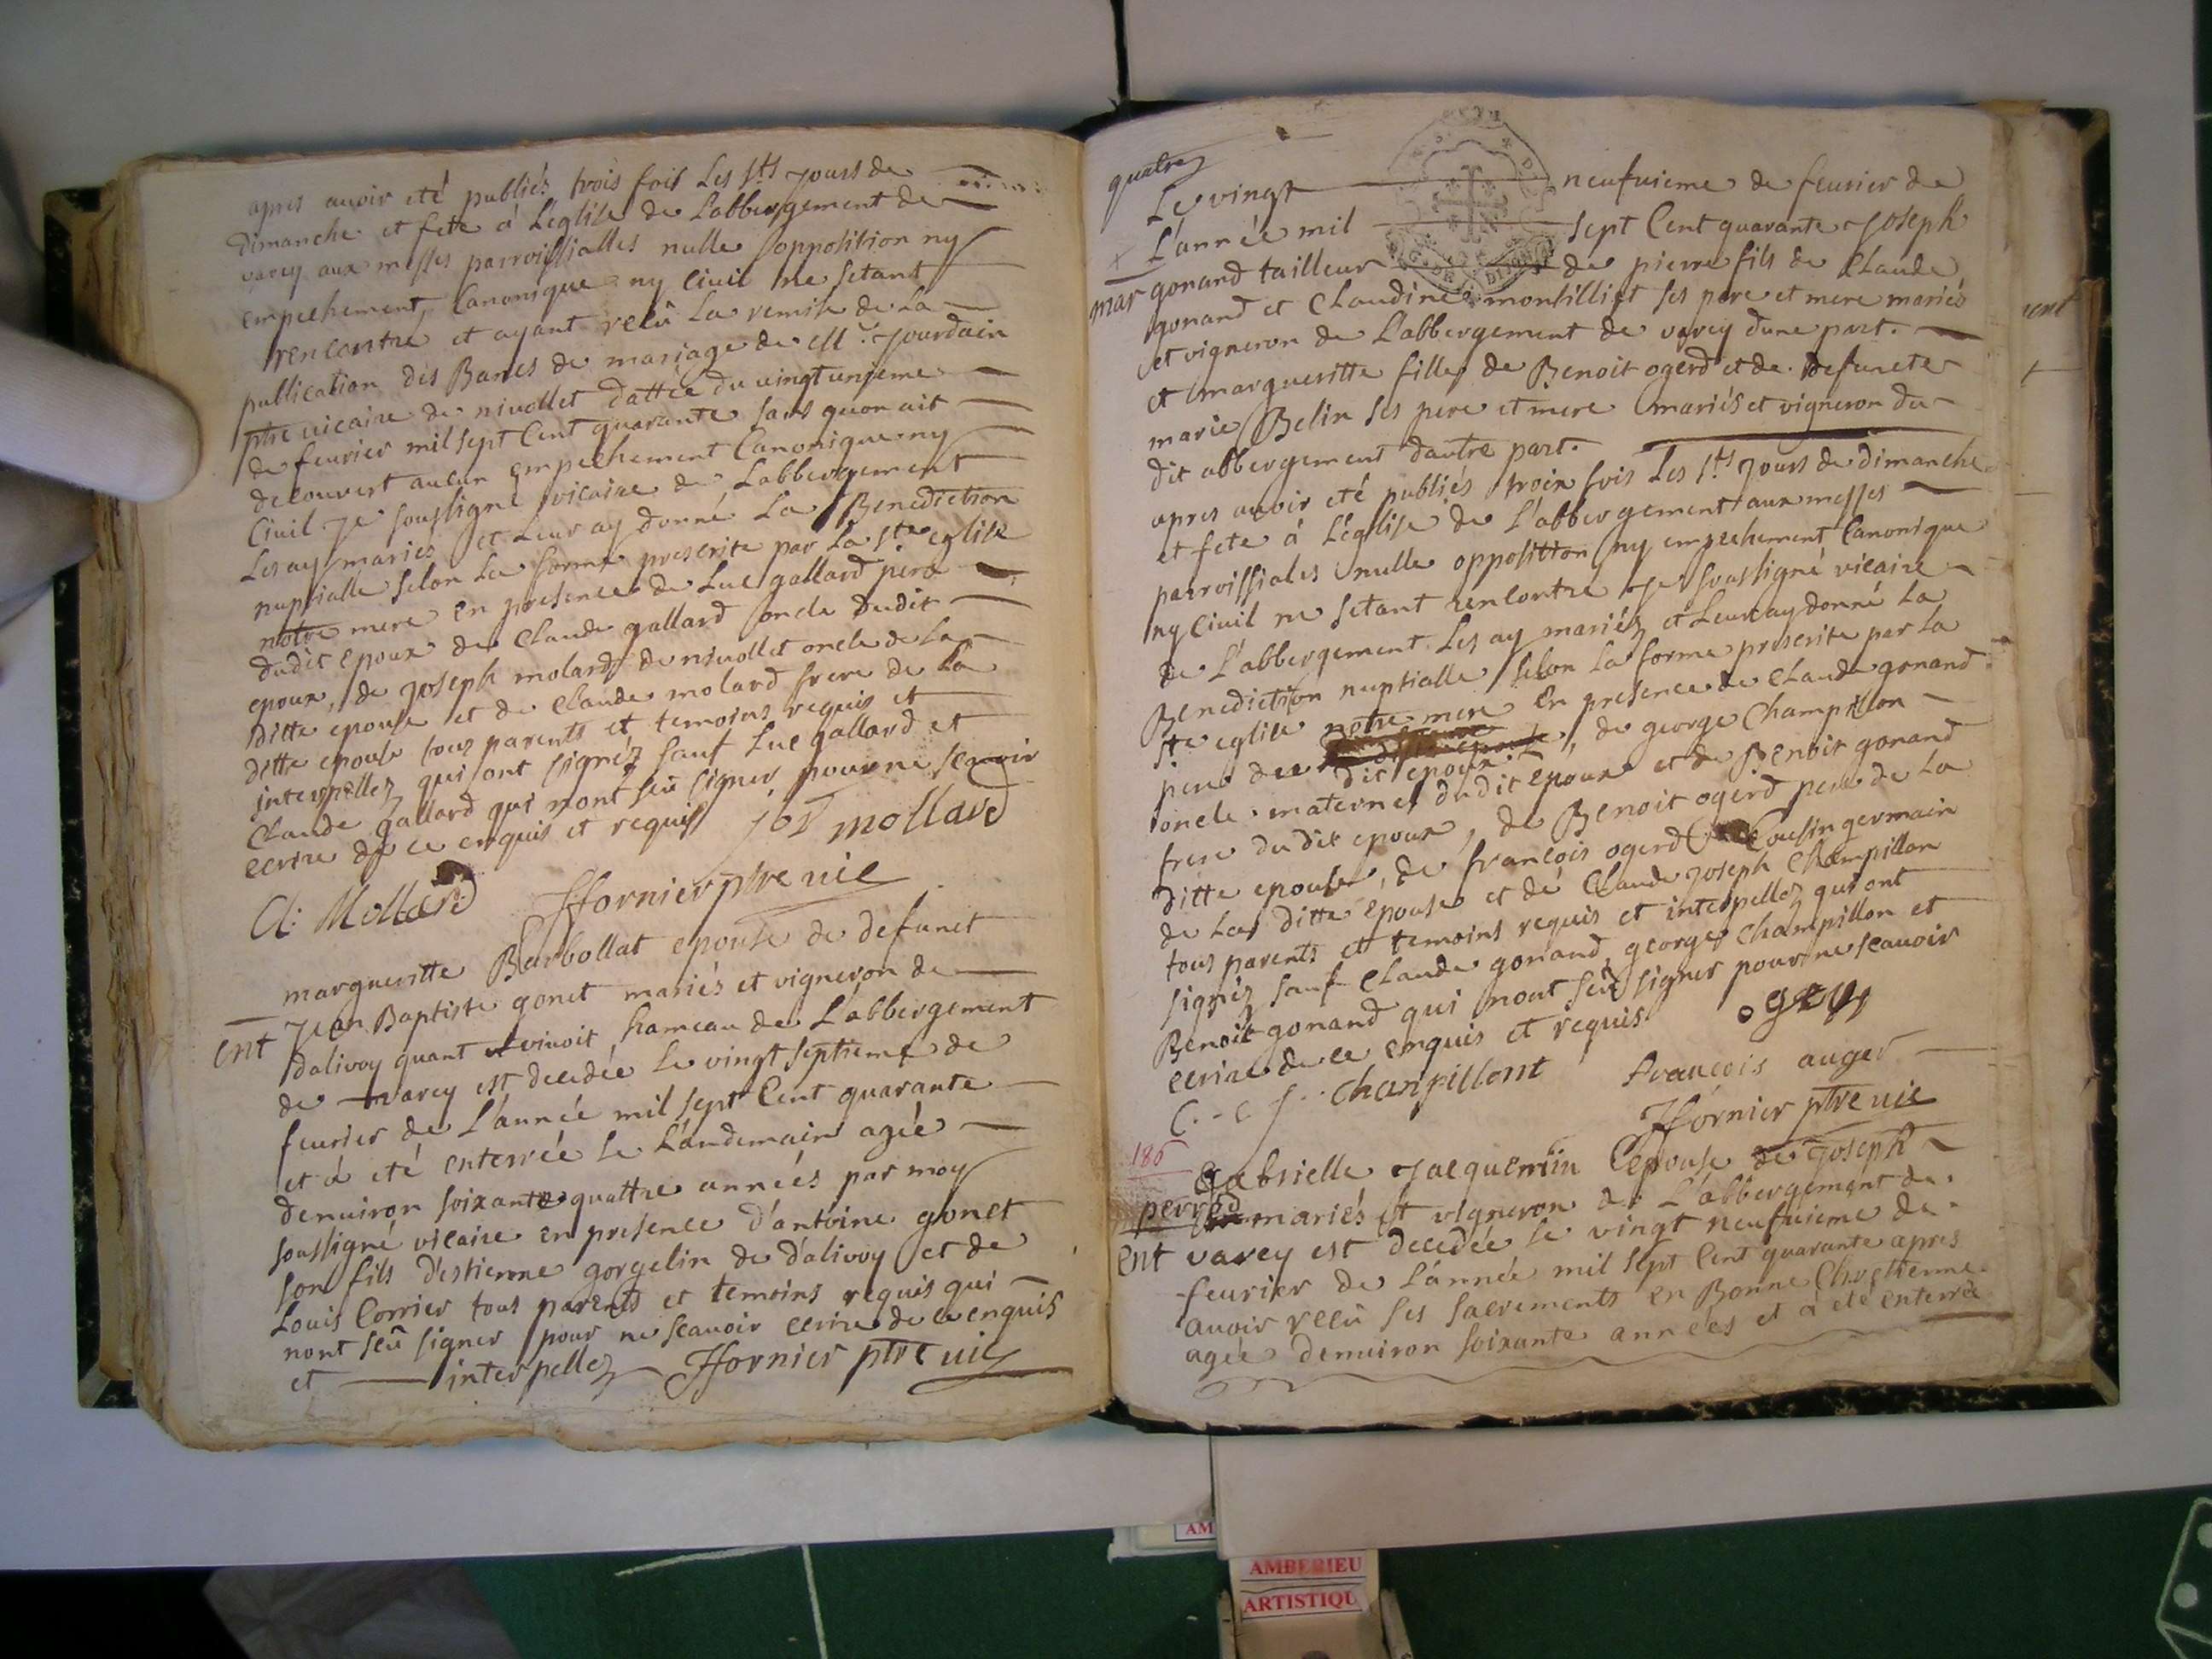 apres auoir eté publiés trois fois Les Sts Jours de
dimanche et fete à L'eglise de L'abbergement de
varey aux messes parroissialles nulle opposition ny
empechement Canonique ny Ciuil ne setant
rencontré et ayant recû La remise de La
publication des Bancs de mariage de Mr. Jourdain
ptre uicaire de niuollet dattée du uingt unieme
de feurier mil sept Cent quarante sans quon ait
decouuert aucun empechement Canonique ny
Ciuil Je soussigné vicaire de L'abbergement
Les ay mariés et Leur ay donné La Benediction
nuptialle selon La forme prescrite par La Ste eglise
notre mere en presence de Luc gallard pere
dudit epoux de Claude gallard oncle dudit
epoux, de Joseph molard de niuollet oncle de La
ditte epouse et de Claude molard frere de La
ditte epouse tous parents et temoins requis et
interpellez qui ont signéz sauf Luc gallard et
Claude gallard qui n'ont seu signer pour ne scauoir
ecrire de ce enquis et requis Jos mollard
Cl: Mollard ffornier ptre uic
margueritte Barbollat epouse de defunct
Jean Baptiste gonet mariés et vigneron de
ent dalivoy quant viuoit hameau de L'abbergement
de varey est decedée Le vingt septieme de
feurier de L'année mil sept Cent quarante
et à eté enterrée Le Landemain agée
denuiron soixante quattre années par moy
soussigné vicaire en presence d'antoine gonet
son fils d'estienne gorgelin de d'alivoy et de
Louis Corrier tous parents et temoins requis qui
nont seû signer pour ne scauoir ecrire de ce enquis
et interpellez ffornier ptre uic
quatre
Le vingt neufuieme de feurier de
L'année mil sept Cent quarante Joseph
mar gonand tailleur de pierre fils de Claude
gonand et Claudine montilliet ses pere et mere mariés
et vigneron de L'abbergement de varey dune part.
et margueritte fille de Benoit ogerd et de defuncte
marie Belin ses pere et mere mariés et vigneron du
dit abbergement dautre part.
apres auoir eté publiés trois fois Les Sts Jours de dimanche
et fete à L'eglise de L'abbergement aux messes
parroissiales nulle opposition ny empechement Canonique
ny Ciuil ne setant rencontré Je soussigné vicaire
de L'abbergement Les ay mariéz et Leur ay donné La
Benediction nuptialle selon La forme prescrite par La
Ste eglise notre mere en presence de Claude gonand
pere du dit epoux, de george Champillon
oncle maternel du dit epoux et de Benoit gonand
frere du dit epoux, de Benoit ogerd pere de La
ditte epouse, de francois ogerd Cousin germain
de La ditte epouse et de Claude Joseph Champillon
tous parents et temoins requis et interpellez qui ont
signéz sauf Claude gonand, george Champillon et
Benoit gonand qui nont seû signer pour ne scauoir
ecrire de ce enquis et requis. oger
C. J. Chanpillont francois auger
ffornier ptre uic
186
Gabrielle Jacquemin epouse de Joseph
perrod mariés et vigneron de L'abbergement de
ent varey est decedée Le vingt neufuieme de
feurier de L'année mil sept Cent quarante apres
auoir recû ses sacrements en Bonne Chretienne
agée denuiron soixante années et à eté enterrée
ent
AMBERIEU
ARTISTIQU